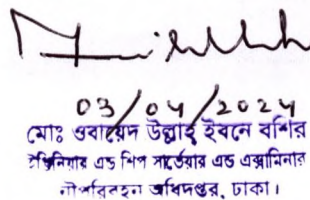 03/04/2024
মোঃ ওবায়েদ উল্লাহ ইবনে বশির
ইঞ্জিনিয়ার এন্ড শিপ সার্ভেয়ার এন্ড এক্সামিনার
নৌপরিবহন অধিদপ্তর, ঢাকা।